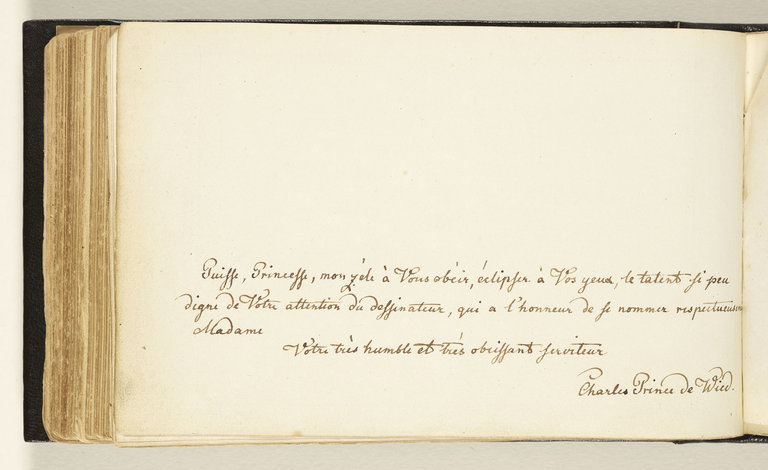 Puisse, Princesse, mon zéle à Vous obéir, éclipser à Vos yeux, le talent si peu
digne de Votre attention du dessinateur, qui a l'honneur de se nommer respectueusem
Madame
Votre très humble et très obeissant serviteur
Charles Prince de Wied.